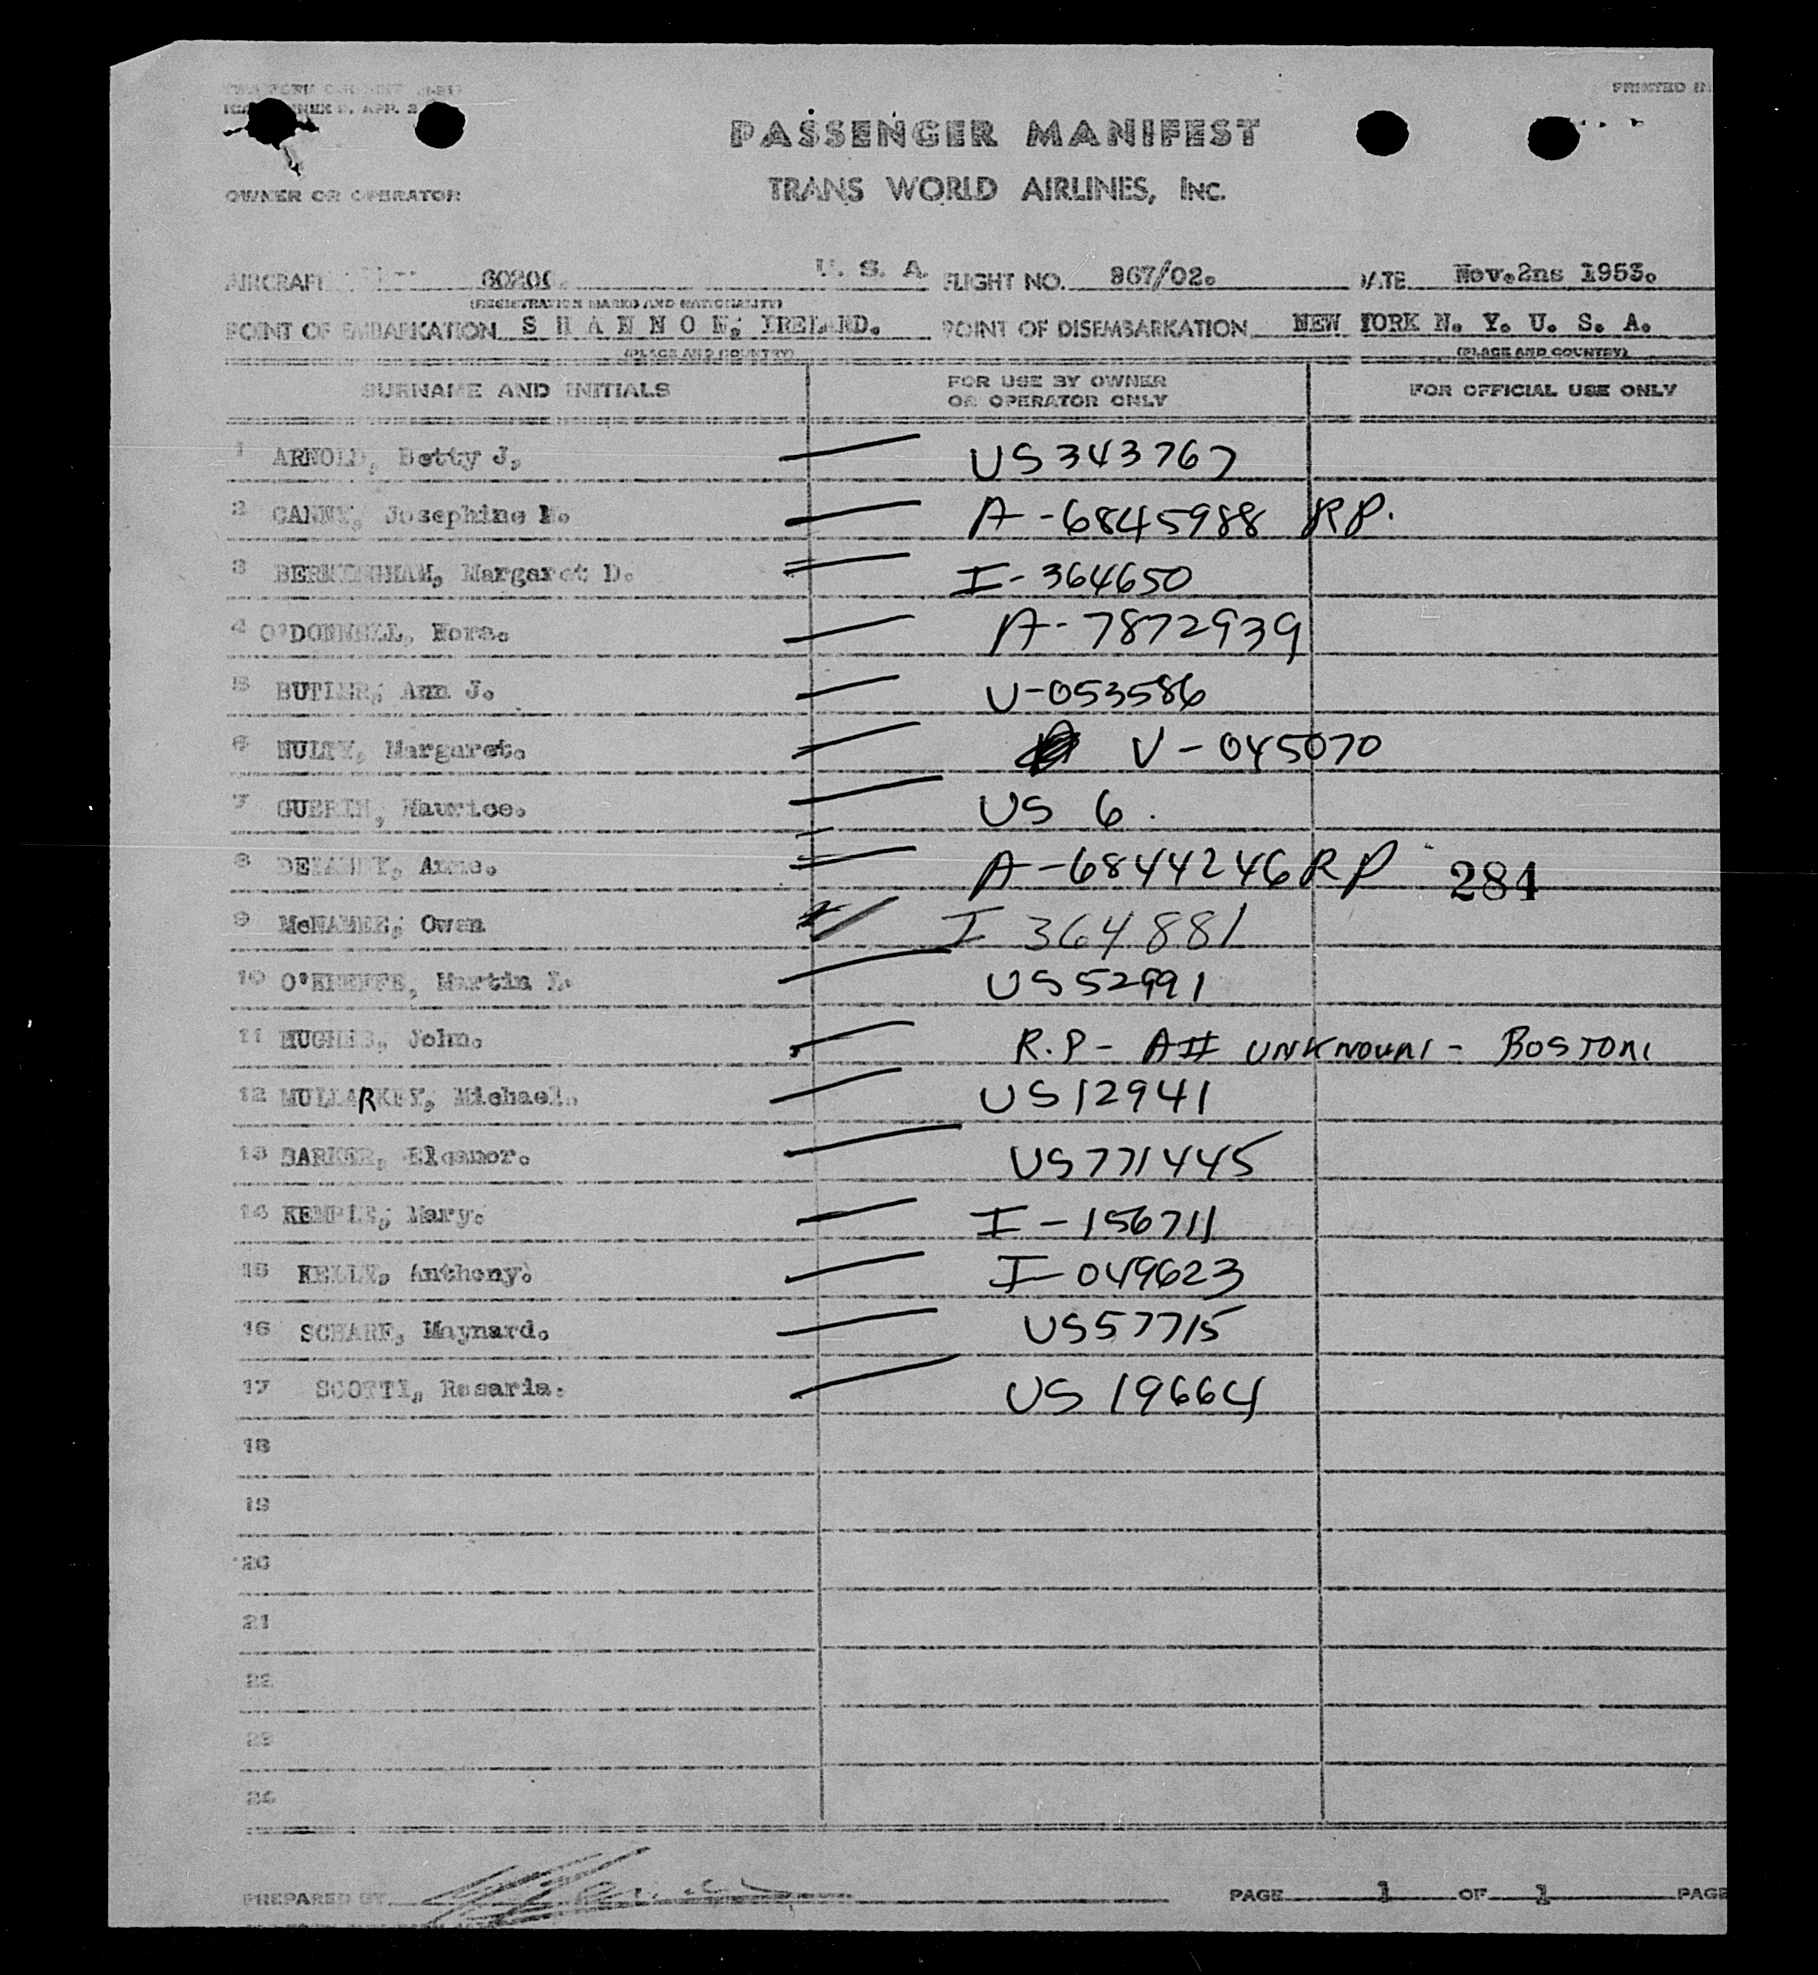 PRINTED IN
PASSENGER MANIFEST
OWNER OR OPERATOR
TRANS WORLD AIRLINES, INC.
AIRCRAFT U. S. A. FLIGHT NO. 967/02. DATE Nov.2ns 1953.
(REGISTRATION MARKS AND NATIONALITY)
POINT OF EMBARKATION S H A N N O N, IRELAND. POINT OF DISEMBARKATION NEW YORK N. Y. U. S. A.
(PLACE AND COUNTRY) (PLACE AND COUNTRY)
SURNAME AND INITIALS FOR USE BY OWNER OR OPERATOR ONLY FOR OFFICIAL USE ONLY
1 ARNOLD, Betty J. US 343767
2 CANNY, Josephine M. A-6845988 RP.
3 BERMINGHAM, Margaret D. I-364650
4 O'DONNELL, Nora. A-7872939
5 BUTLER, Ann J. V-053586
6 NULTY, Margaret. V-045070
7 GUERIN, Maurice. US 6.
8 DELANEY, Anne. A-6844246 RP 284
9 McNAMEE, Owen I 364881
10 O'KEEFFE, Martin US 52991
11 HUGHES, John. R.P- A# UNKNOWN - BOSTON
12 MULLARKEY, Michael. US 12941
13 BARKER, Eleanor. US 771445
14 KEMPLE, Mary. I-156711
15 KELLY, Anthony. I-049623
16 SCHARF, Maynard. US 57715
17 SCOTTI, Rosaria. US 19664
18
19
20
21
22
23
24
PREPARED BY PAGE 1 OF 1 PAGE